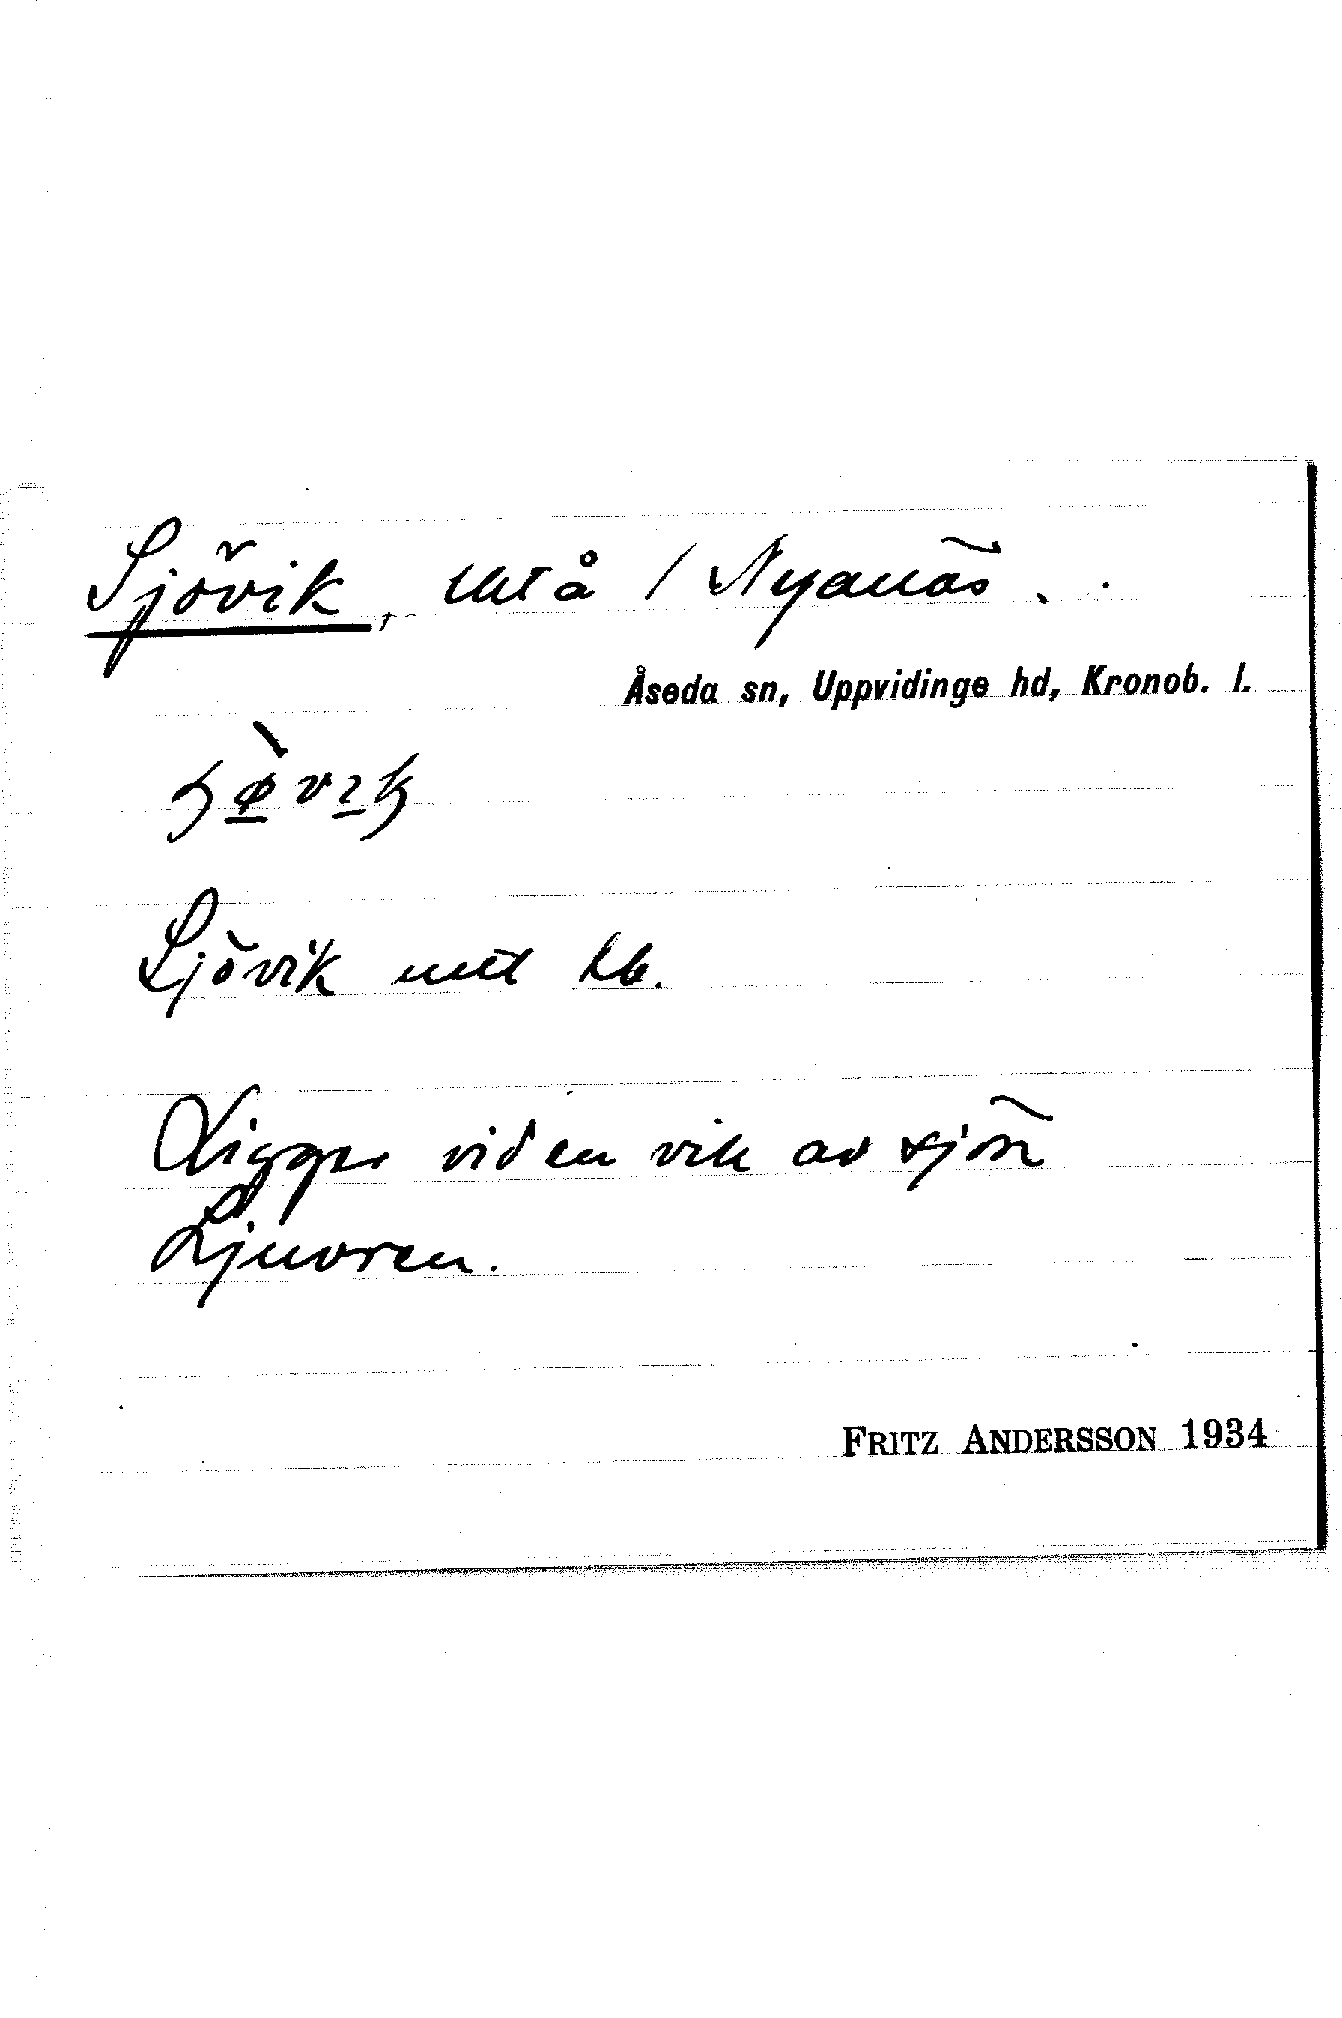 Sjövik, lht å / Nyanäs.
Åseda sn, Uppvidinge hd, Kronob. l.
Sjövik
Ligger vid en vik av sjön
Ljuvren.
FRITZ ANDERSSON 1934